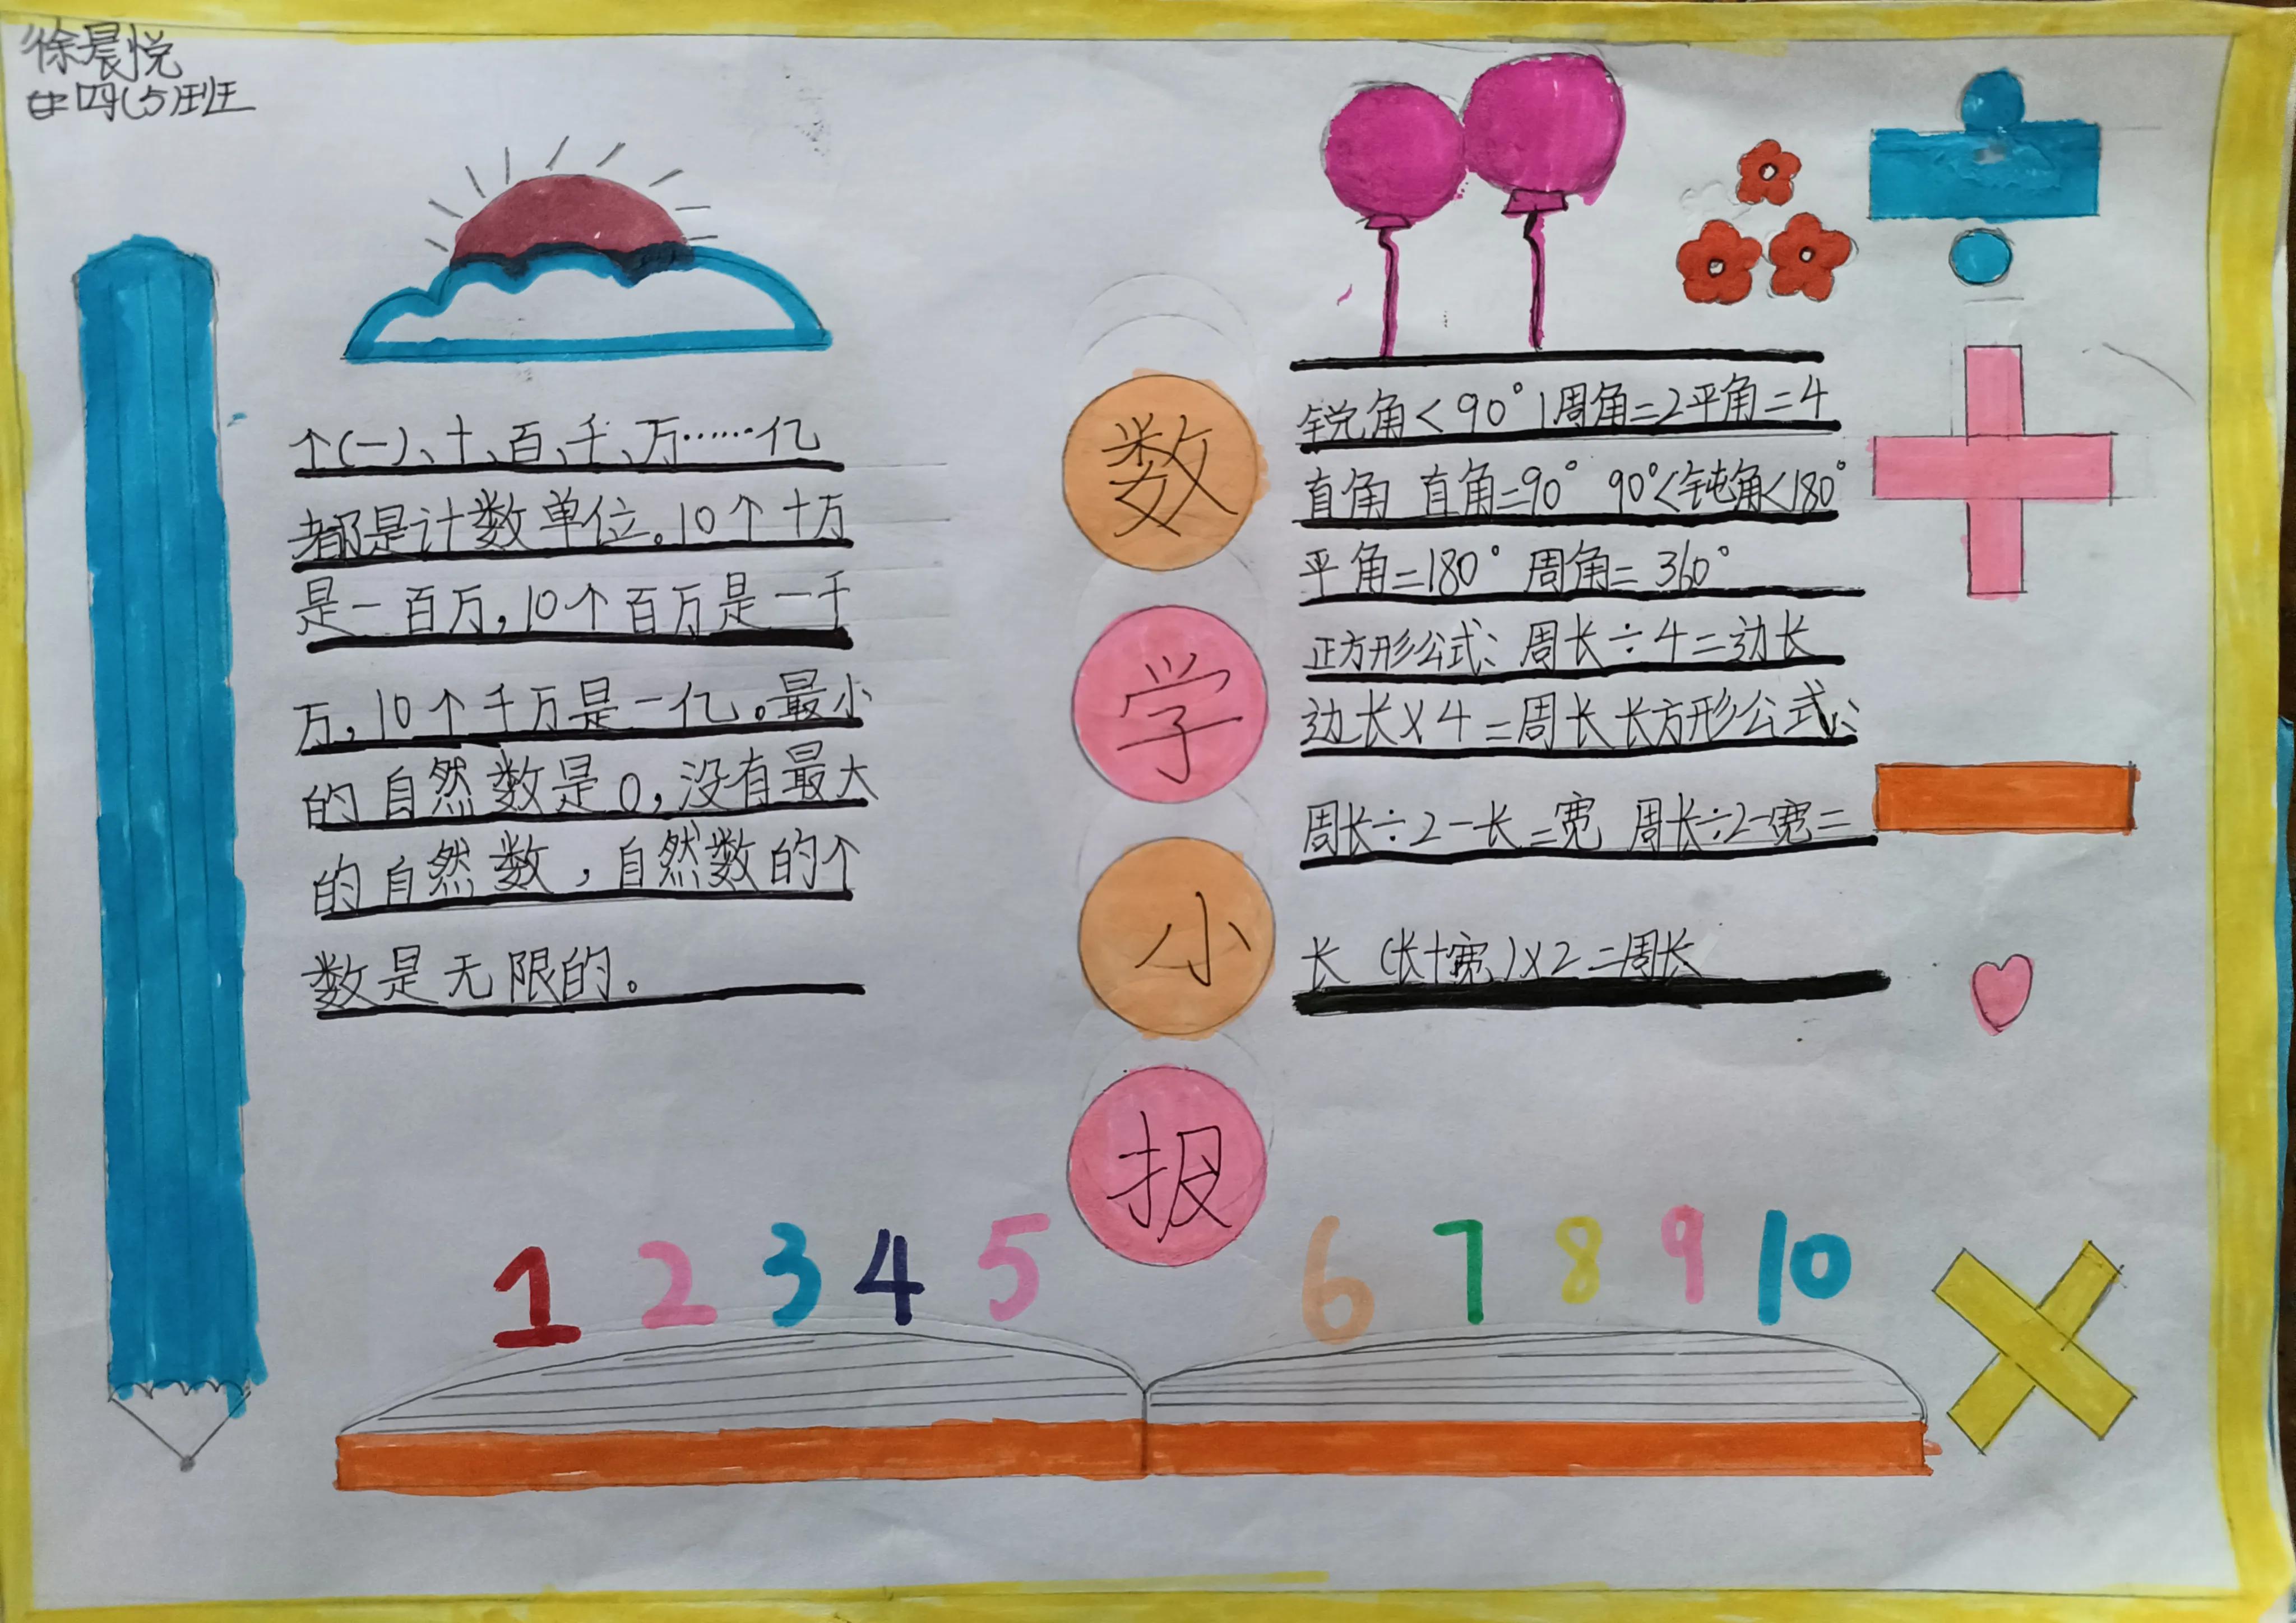 徐晨悦
四(5)班
个(一)、十、百、千、万……亿
都是计数单位。10个十万
是一百万,10个百万是一千
万,10个千万是一亿。最小
的自然数是0,没有最大
的自然数,自然数的个
数是无限的。
数
学
小
报
锐角<90° 1周角=2平角=4
直角 直角=90° 90°<钝角<180°
平角=180° 周角=360°
正方形公式: 周长÷4=边长
边长×4=周长 长方形公式:
周长÷2-长=宽 周长÷2-宽=
长 (长+宽)×2=周长
1 2 3 4 5 6 7 8 9 10